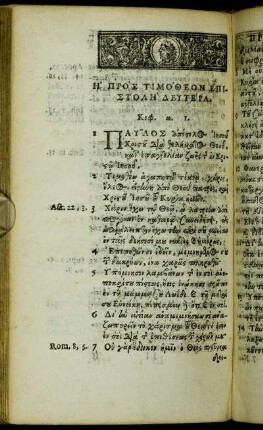 Η ΠΡΟΣ ΤΙΜΟΘΕΟΝ ΕΠΙ-
ΣΤΟΛΗ ΔΕΥΤΕΡΑ.
Κεφ. α. 1.
1 ΠΑΥΛΟΣ ἀπόστολος Ἰησοῦ
Χριστοῦ διὰ θελήματος Θεοῦ,
κατ' ἐπαγγελίαν ζωῆς τῆς ἐν Χρι-
στῷ Ἰησοῦ,
2 Τιμοθέῳ ἀγαπητῷ τέκνῳ· χάρις,
ἔλεος, εἰρήνη ἀπὸ Θεοῦ πατρὸς, καὶ
Χριστοῦ Ἰησοῦ τοῦ Κυρίου ἡμῶν.
Act. 22, 3. 3 Χάριν ἔχω τῷ Θεῷ, ᾧ λατρεύω ἀπὸ
προγόνων ἐν καθαρᾷ συνειδήσει, ὡς
ἀδιάλειπτον ἔχω τὴν περὶ σοῦ μνείαν
ἐν ταῖς δεήσεσί μου νυκτὸς καὶ ἡμέρας,
4 Ἐπιποθῶν σε ἰδεῖν, μεμνημένος σου
τῶν δακρύων, ἵνα χαρᾶς πληρωθῶ·
5 Ὑπόμνησιν λαμβάνων τῆς ἐν σοὶ ἀνυ-
ποκρίτου πίστεως, ἥτις ἐνῴκησε πρῶτον
ἐν τῇ μάμμῃ σου Λωΐδι καὶ τῇ μητρί
σου Εὐνίκῃ, πέπεισμαι δὲ ὅτι καὶ ἐν σοί.
6 Δι' ἣν αἰτίαν ἀναμιμνήσκω σε ἀνα-
ζωπυρεῖν τὸ χάρισμα τοῦ Θεοῦ, ὅ ἐστιν
ἐν σοὶ διὰ τῆς ἐπιθέσεως τῶν χειρῶν μου.
Rom. 8, 5. 7 Οὐ γὰρ ἔδωκεν ἡμῖν ὁ Θεὸς πνεῦμα